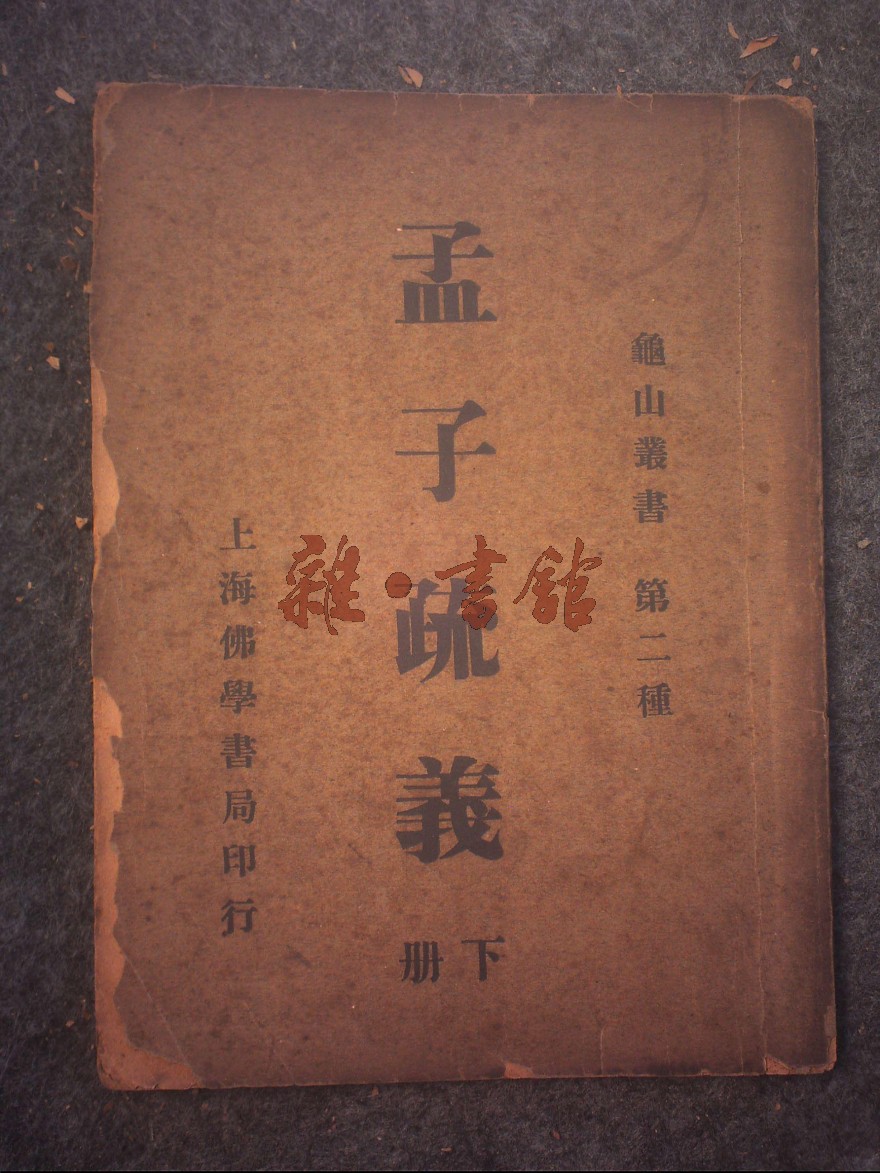 龜山叢書 第二種
孟子疏義
下册
上海佛學書局印行
雜·書館